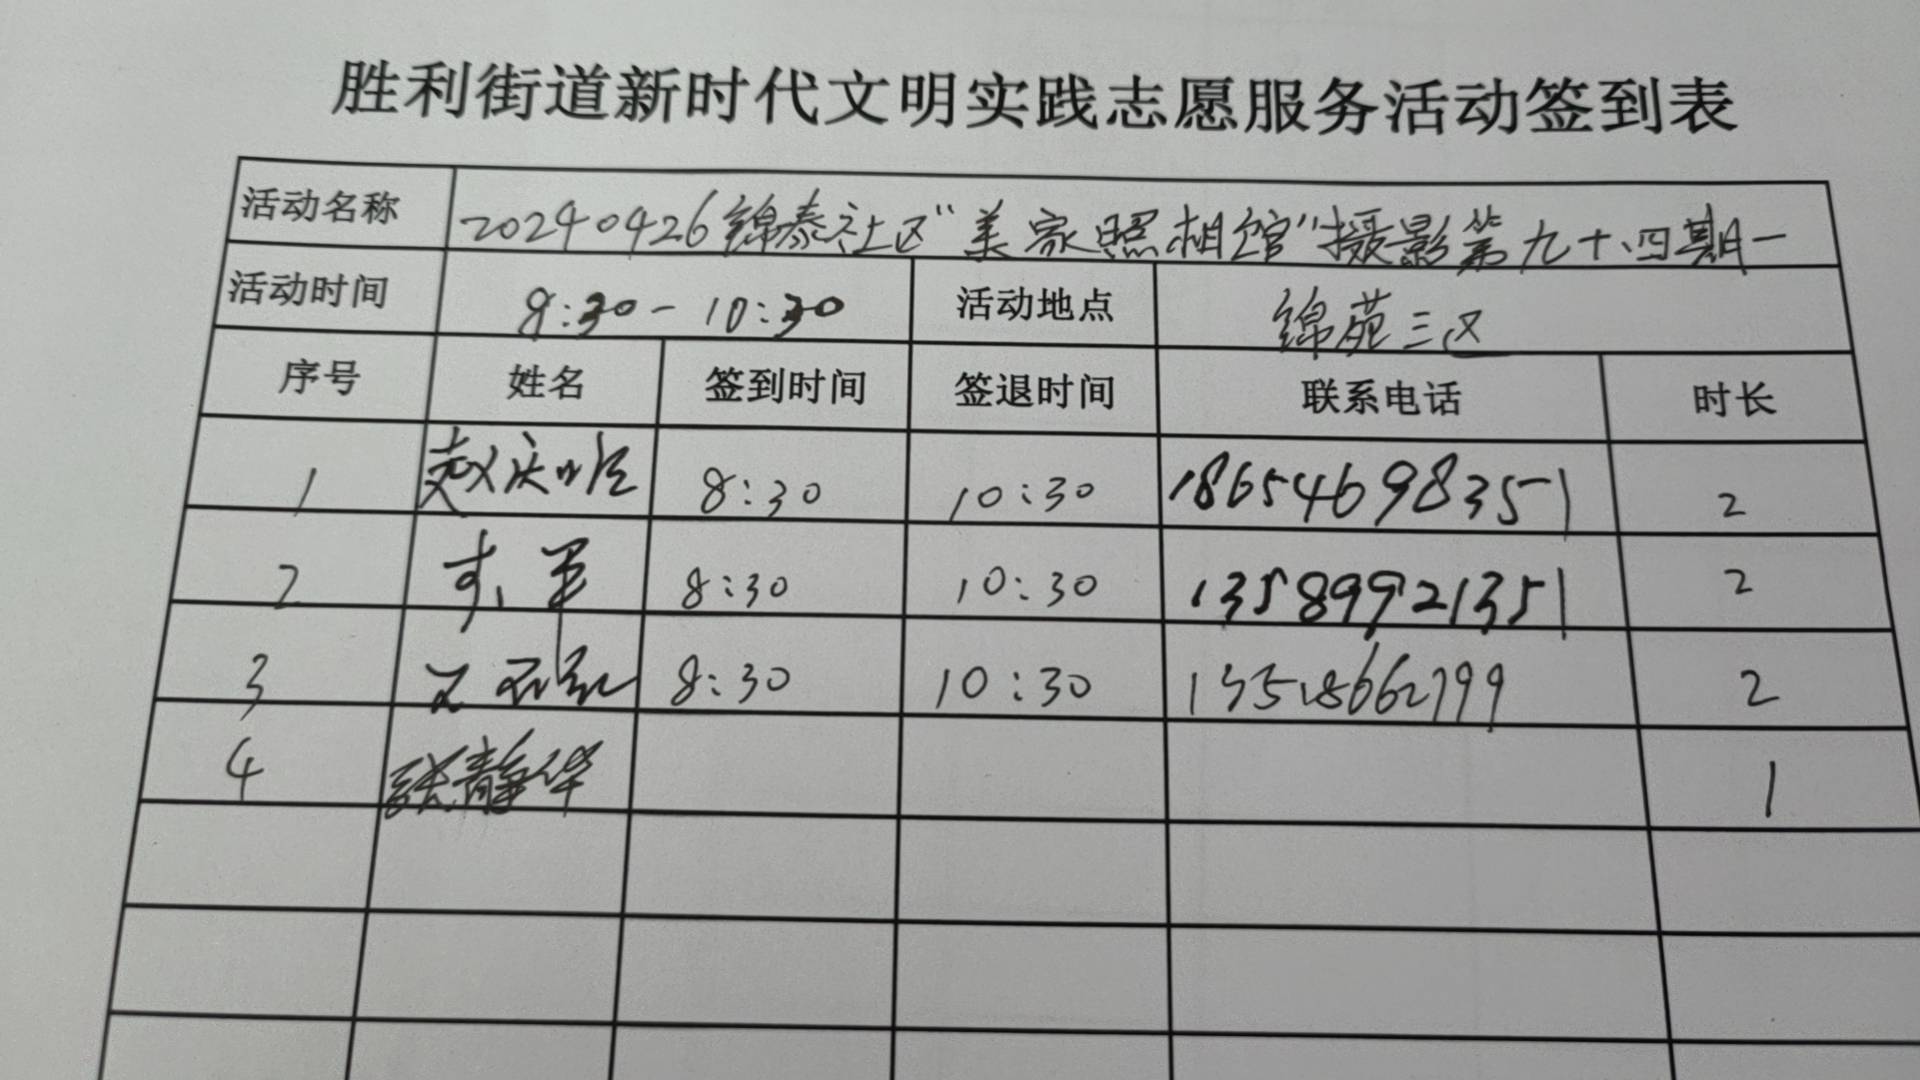 胜利街道新时代文明实践志愿服务活动签到表
活动名称 20240426锦泰社区“美家照相馆”摄影第九十四期一
活动时间 8:30-10:30 活动地点 锦苑三区
序号 姓名 签到时间 签退时间 联系电话 时长
1 8:30 10:30 18654698351 2
2 8:30 10:30 135899921351 2
3 8:30 10:30 2
4 张静华 1